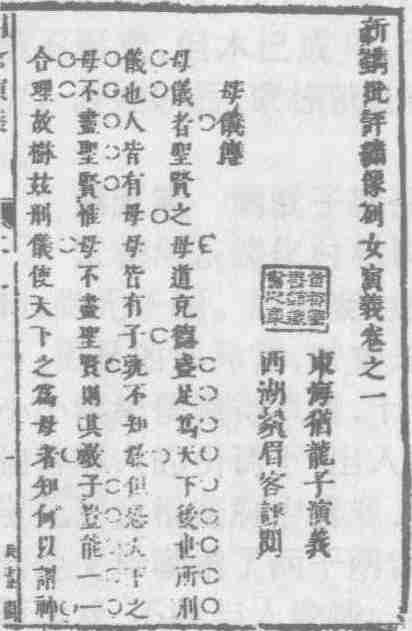 新鐫批評繡像列女演義卷之一
東海猶龍子演義
西湖鬚眉客評閱
母儀傳
母儀者聖賢之母道充德盛足爲天下後世所刑
儀也人皆有母母皆有子孰不知教但恐天下之
母不盡聖賢惟母不盡聖賢則其教子豈能一一
合理故樹茲刑儀使天下之爲母者知何以謂神